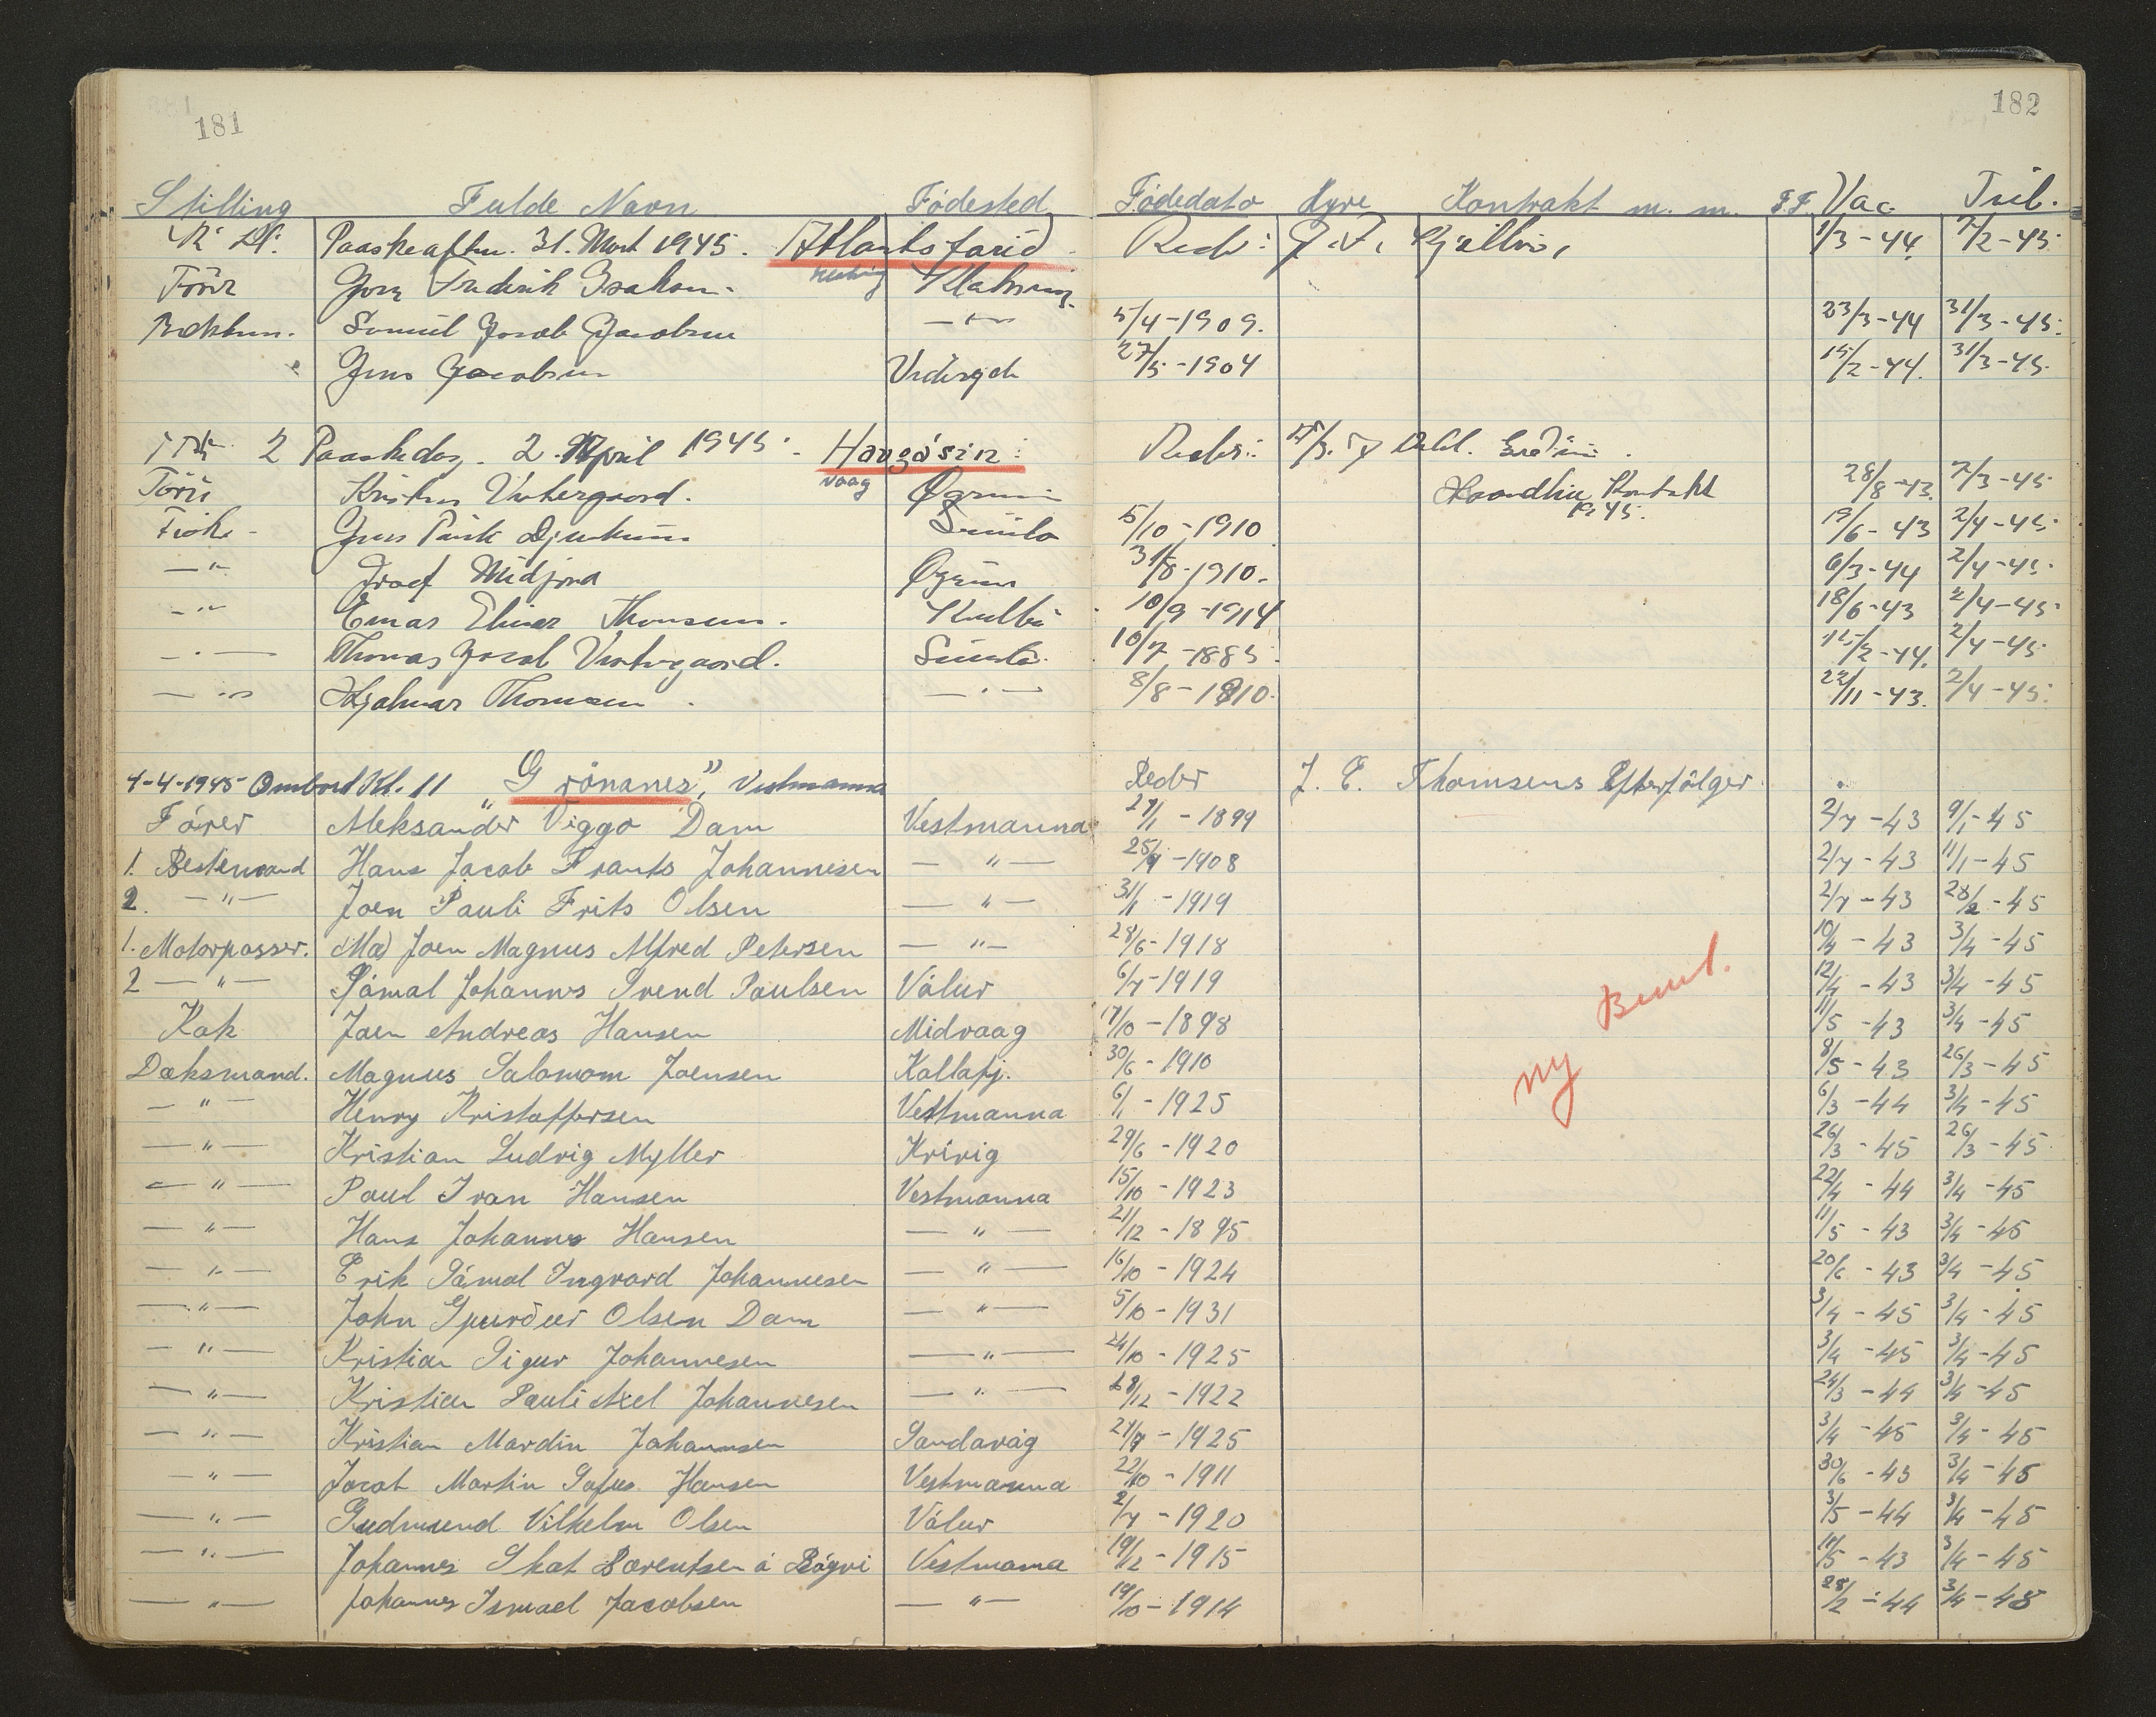 181
182
Stilling Fulde Navn Fødested Fødedato Hyre Kontrakt m. m. F.F. Vac Tril.
Paaskeaften. 31. Mart 1945. Atlantsfarid Redr: 1/3-44. 7/2-45.
Fører Frederik Isaksen.
Samuel Jacob Jacobsen —"— 5/4-1909. 23/3-44 31/3-45.
Jens Jacobsen 27/5-1904 15/2-44. 31/3-45.
2 Paaskedag. 2. April 1945. Havgásin: Redr:
Vaag Kontrakt 28/8-43. 7/3-45
1945.
5/10-1910 19/6-43 2/4-45.
—"— 31/8-1910. 6/3-44 2/4-45.
—"— Einar Elieser Thomsen. Kvalbø 10/9-1914 18/6-43 2/4-45.
—"— Thomas Jacob Vestergaard. Sumbø. 10/7-1885. 2/4-45.
—"— Hjalmar Thomsen. —"— 8/8-1910. 22/11-43. 2/4-45.
4-4-1945 Ombord Kl. 11 "Grönanes", Vestmanna Reder J. C. Thomsens Efterfölger.
Fører Aleksander Viggo Dam Vestmanna 27/1-1899 2/7-43 9/1-45
1. Bestemand Hans Jacob Frants Johannesen —"— 25/4-1908 2/7-43 11/1-45
2. —"— Joen Pauli Frits Olsen —"— 31/1-1919 2/7-43 28/2-45
1. Motorpasser. Joen Magnus Alfred Petersen —"— 28/6-1918 10/4-43 3/4-45
2 —"— Jámal Johannes Svend Poulsen Válur 6/7-1919 12/4-43 3/4-45
Kok Joen Andreas Hansen Midvaag 17/10-1898 11/5-43 3/4-45
Dæksmand. Magnus Salomom Joensen Kollafj. 30/6-1910 8/5-43 26/3-45
—"— Henry Kristoffersen Vestmanna 6/1-1925 6/3-44 3/4-45
—"— Kristian Ludvig Myller Krivig 29/6-1920 26/3-45 26/3-45
ny
—"— Paul Ivan Hansen Vestmanna 15/10-1923 22/4-44 3/4-45
—"— Hans Johannes Hansen —"— 21/12-1895 11/5-43 3/4-45
—"— Erik Jámal Ingvard Johannesen —"— 16/10-1924 20/6-43 3/4-45
—"— John Sjurður Olsen Dam —"— 5/10-1931 3/4-45 3/4-45
—"— Kristian Sigur Johannesen —"— 24/10-1925 3/4-45 3/4-45
—"— Kristian Pauli Axel Johannesen —"— 28/12-1922 24/3-44 3/4-45
—"— Kristian Mardin Johannsen Sandavág 27/7-1925 3/4-45 3/4-45
—"— Jacob Martin Sofus Hansen Vestmanna 22/10-1911 30/6-43 3/4-45
—"— Gudmund Vilhelm Olsen Válur 2/7-1920 3/5-44 3/4-45
—"— Johannes Skat Barentsen á Bøgvi Vestmanna 19/12-1915 11/5-43 3/4-45
—"— Johannes Ismael Jacobsen —"— 19/10-1914 28/2-44 3/4-45